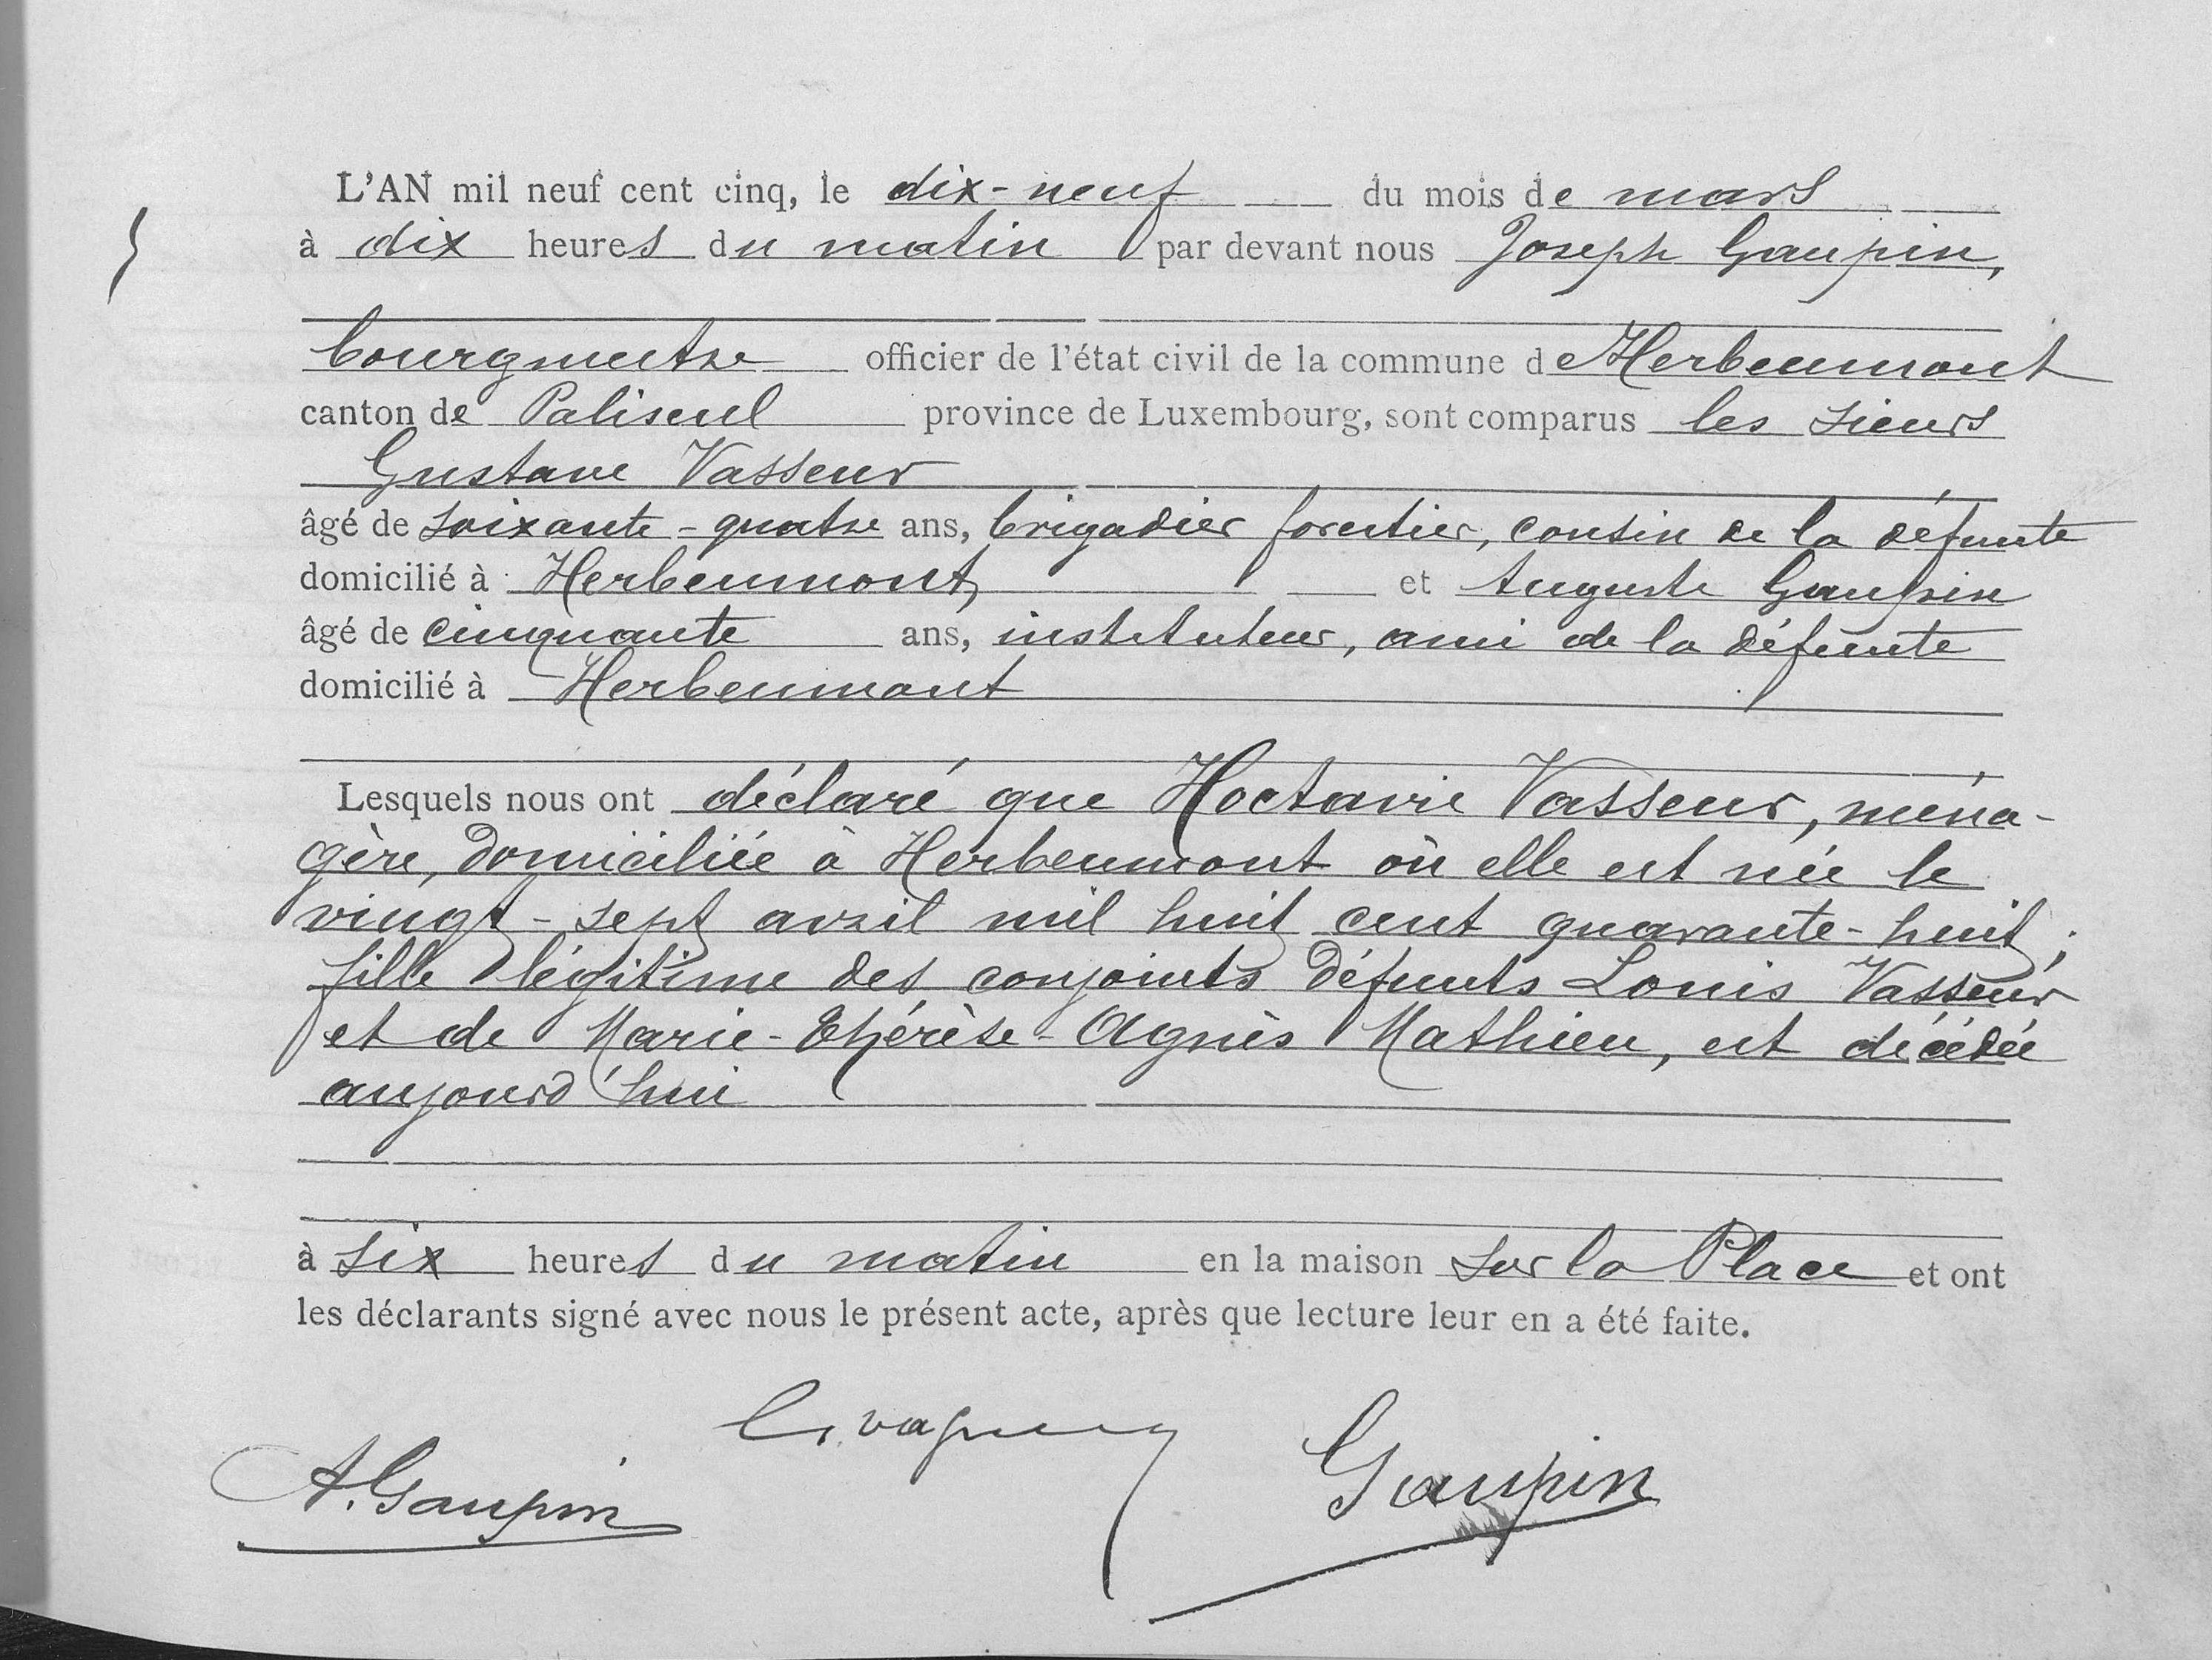 L'AN mil neuf cent cinq, le dix-neuf du mois de mars
à dix heures du matin par devant nous Joseph Gaupin,
bourgmestre officier de l'état civil de la commune de Herbeumont
canton de Paliseul province de Luxembourg, sont comparus les sieurs
Gustave Vasseur
âgé de soixante-quatre ans, brigadier forestier, cousin de la défunte
domicilié à Herbeumont, et Auguste Gaupin
âgé de cinquante ans, instituteur, ami de la défunte
domicilié à Herbeumont
Lesquels nous ont déclaré que Hoctavie Vasseur, ména-
gère, domiciliée à Herbeumont où elle est née le
vingt-sept avril mil huit cent quarante-huit;
fille légitime des conjoints défunts Louis Vasseur
et de Marie-Thérèse-Agnès Mathieu, est décédée
aujourd'hui
à six heures du matin en la maison sur la Place et ont
les déclarants signé avec nous le présent acte, après que lecture leur en a été faite.
A. Gaupin
Gaupin